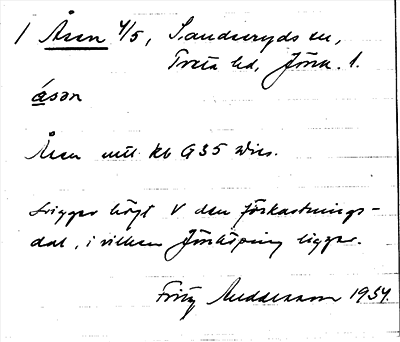 1 Åsen 4/5, Sandseryds sn,
Tveta hd, Jönk. l.
åsən
Åsen mtl kb G35 Wires.
Ligger högt V den förkastnings-
dal, i vilken Jönköping ligger.
Fritz Auddesson 1934.